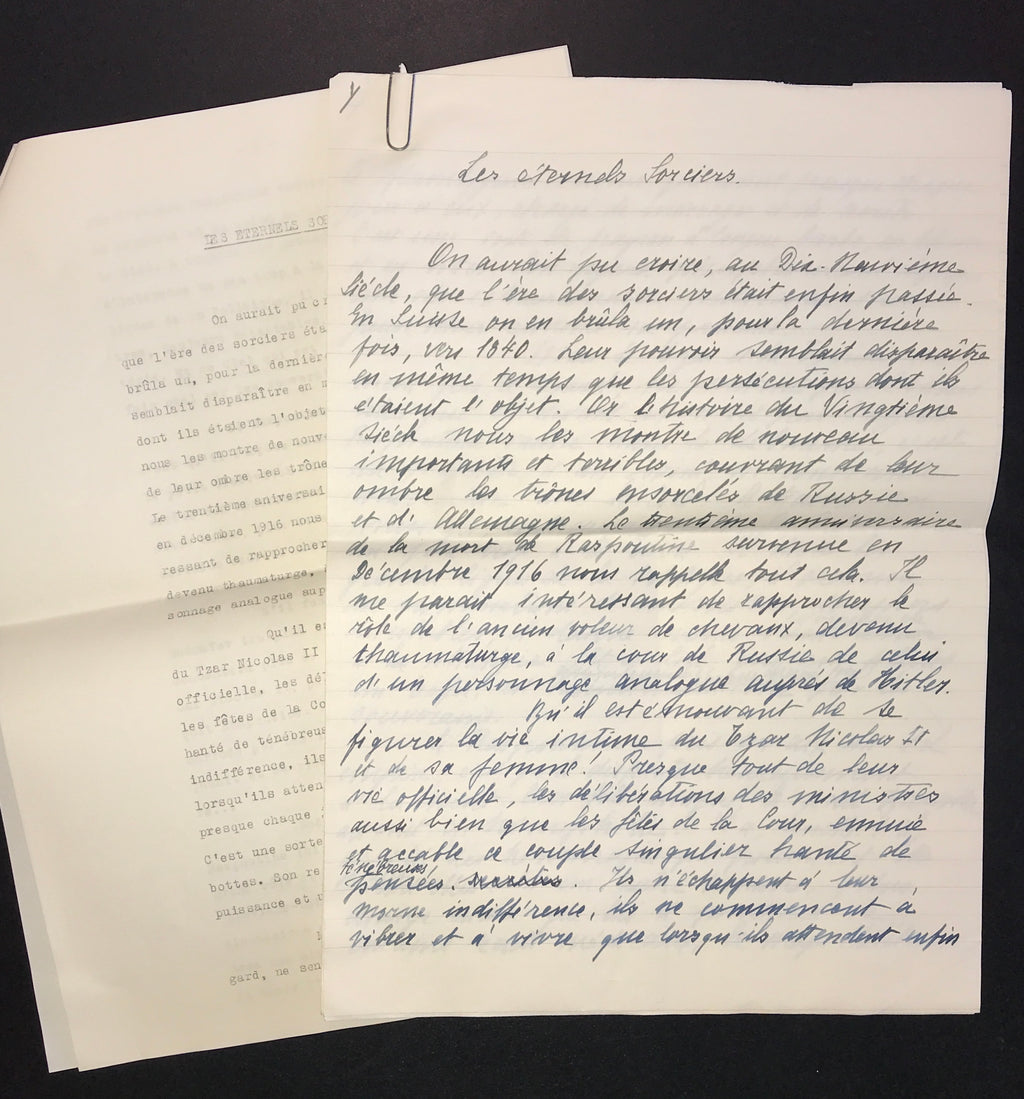 LES ETERNELS SOR
On aurait pu cr
que l'ère des sorciers éta
brûla un, pour la dernièr
semblait disparaître en m
dont ils étaient l'objet
nous les montre de nouve
de leur ombre les trône
Le trentième aniversai
en décembre 1916 nous
ressant de rapprocher
devenu thaumaturge,
sonnage analogue aup
Qu'il es
du Tzar Nicolas II
officielle, les dél
les fêtes de la Co
hanté de ténébreus
indifférence, ils
lorsqu'ils atten
presque chaque
C'est une sorte
bottes. Son re
puissance et
gard, ne sen
Y
Les éternels Sorciers.
On aurait pu croire, au Dix-Neuvième
Siècle, que l'ère des sorciers était enfin passée.
En Suisse on en brûla un, pour la dernière
fois, vers 1840. Leur pouvoir semblait disparaître
en même temps que les persécutions dont ils
étaient l'objet. Or l'histoire du Vingtième
siècle nous les montre de nouveau
importants et terribles, couvrant de leur
ombre les trônes ensorcelés de Russie
et d'Allemagne. Le trentième anniversaire
de la mort de Raspoutine survenue en
Décembre 1916 nous rappelle tout cela. Il
me parait intéressant de rapprocher le
rôle de l'ancien voleur de chevaux, devenu
thaumaturge, à la cour de Russie de celui
d'un personnage analogue auprès de Hitler.
Qu'il est émouvant de se
figurer la vie intime du Tzar Nicolas II
et de sa femme! Presque tout de leur
vie officielle, les délibérations des ministres
aussi bien que les fêtes de la Cour, ennuie
et accable ce couple singulier hanté de
ténébreuses
pensées. Ils n'échappent à leur
morne indifférence, ils ne commencent à
vibrer et à vivre que lorsqu'ils attendent enfin